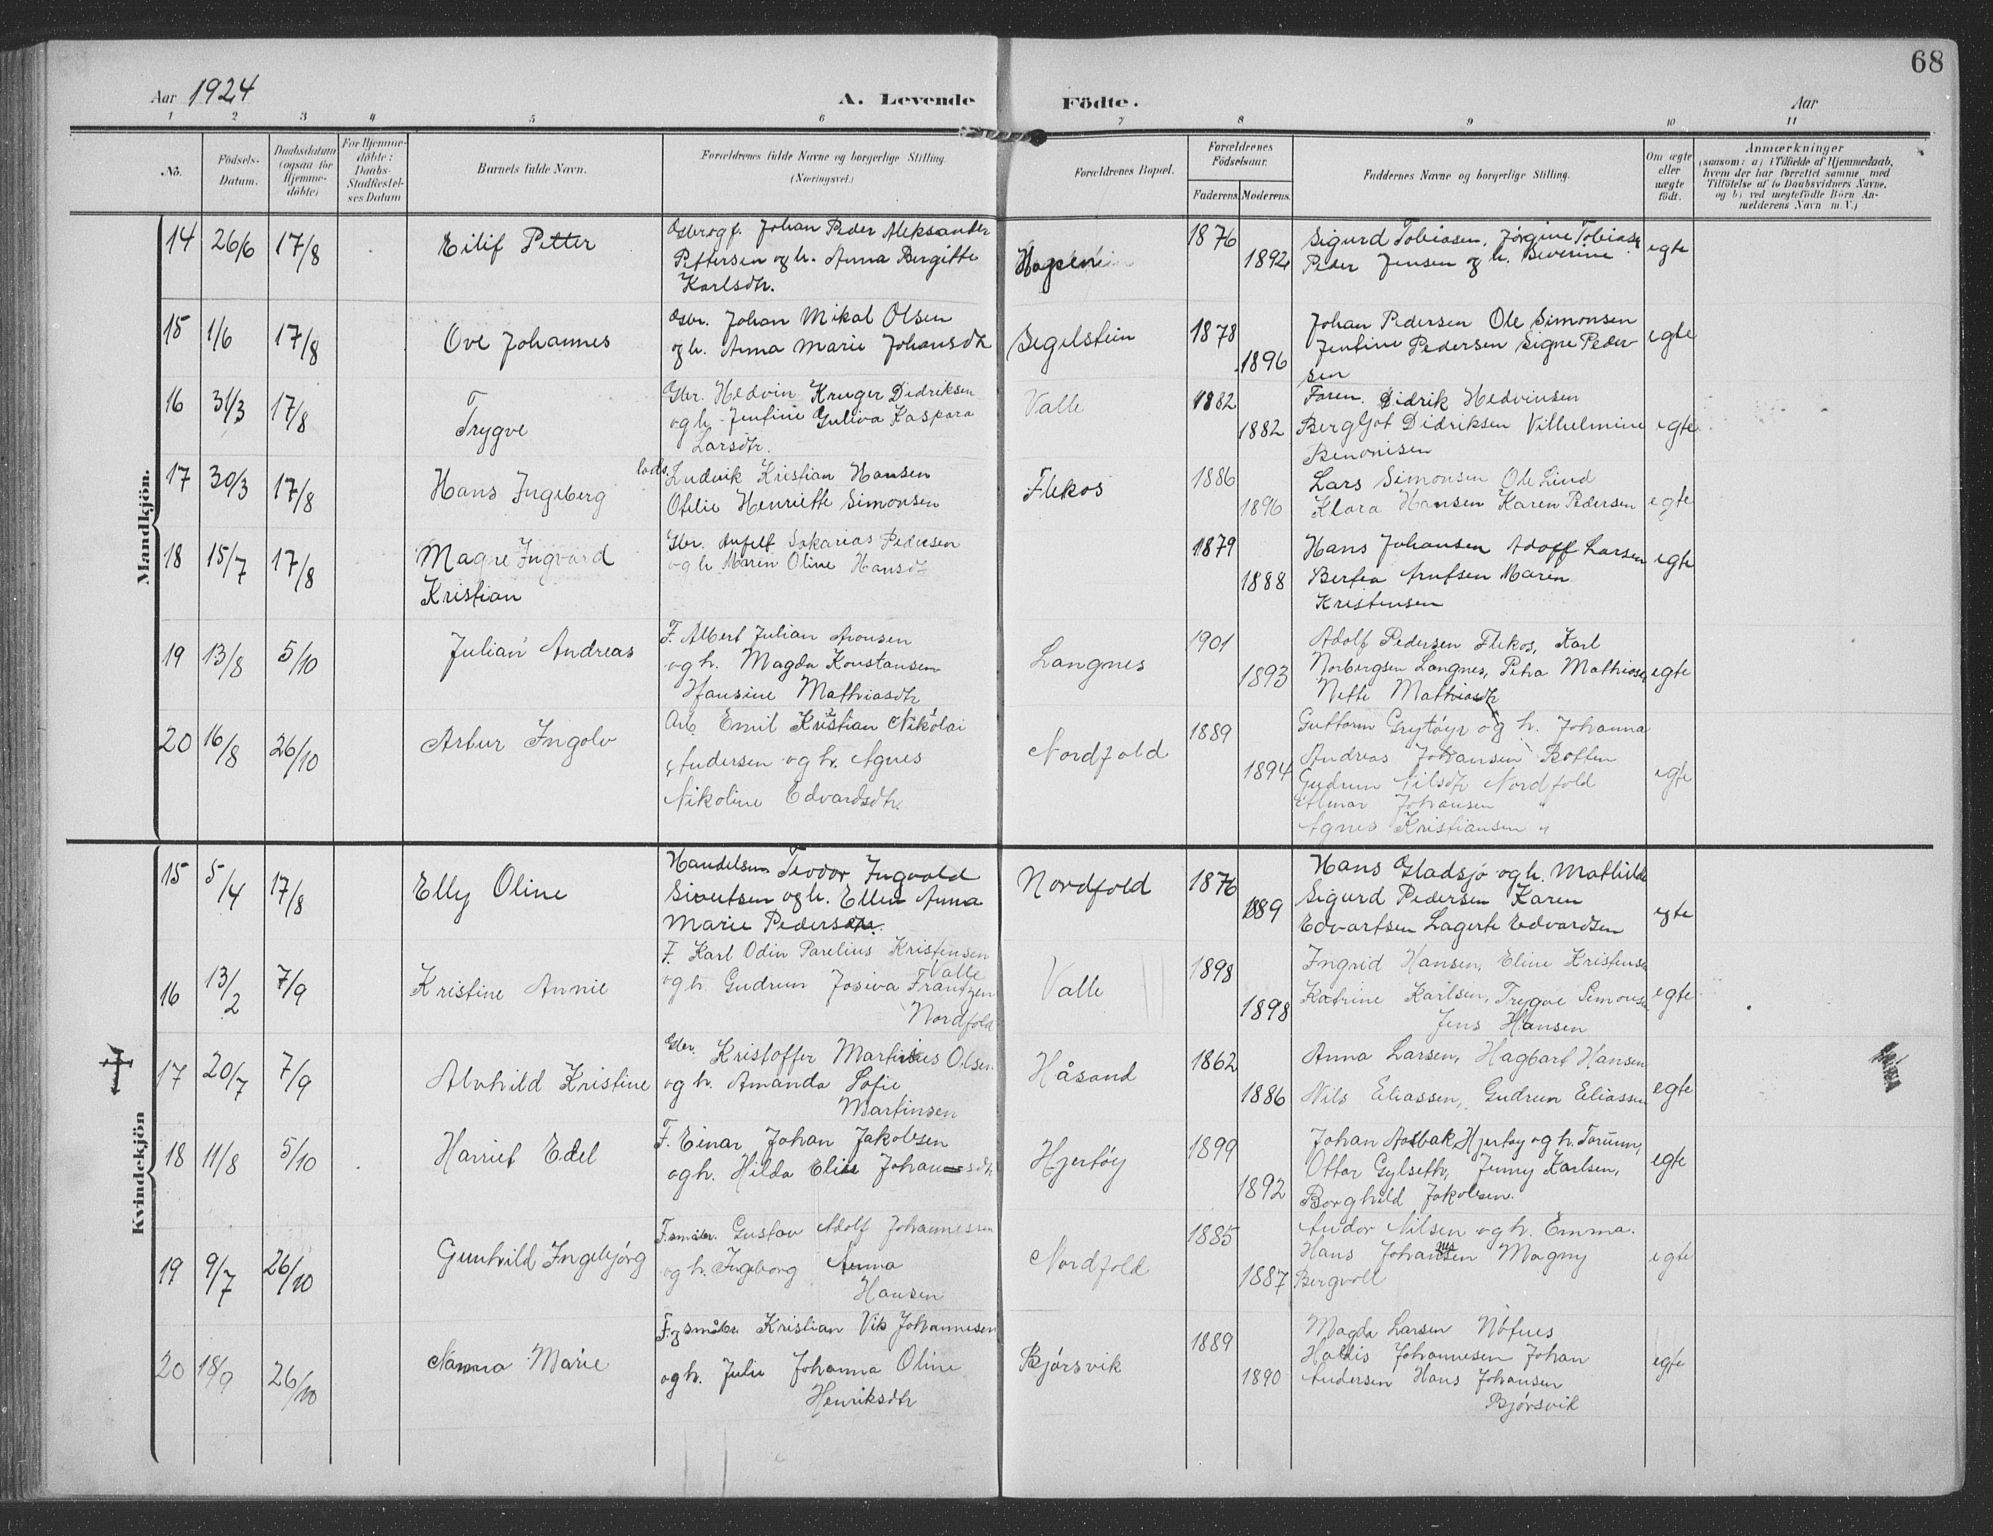 68
Aar 1924 A. Levende Födte. Aar
1 2 3 4 5 6 7 8 9 10 11
No. Födsels-Datum. Daabsdatum (ogsaa for Hjemme-döbte) For Hjemme-döbte: Daabs-Stadfæstel-ses Datum Barnets fulde Navn. Forældrenes fulde Navne og borgerlige Stilling. (Næringsvei.) Forældrenes Bopæl. Forældrenes Födselsaar. Faderens. Moderens. Faddernes Navne og borgerlige Stilling. Om ægte eller uægte födt. Anmærkninger (saasom: a) i Tilfælde af Hjemmedaab, hvem der har forrettet samme, med Tilföielse af to Daabsvidners Navne, og b) ved uægtefödte Börn Anmelderens Navn m. V.)
Mandkjön.
14 26/6 17/8 Eilif Petter Johan Peder Aleksander 1876 Sigurd Tobiasen, Jørgine Tobias egte
Pettersen og h. Anna Bergitte 1892 Peder Jensen og h. Severine
Karlsdtr.
15 1/6 17/8 Ove Johannes Gbr. Johan Mikal Olsen Segelstein 1878 Johan Pedersen Ole Simonsen egte
og h. Anna Marie Johansdtr 1896 Jentine Pedersen Signe Peder-
sen
16 31/3 17/8 Trygve Gbr. Hedvin Kruger Didriksen Valle 1882 Faren. Didrik Hedvinsen
og h. Jentine Guliva Kaspara 1882 Bergljot Didriksen Vilhelmine egte
Larsdtr. Benonisen
17 30/3 17/8 Hans Ingeberg lods. Ludvik Kristian Hansen Flekos 1886 Lars Simonsen Ole Lind
Otelie Henriette Simonsen 1896 Klara Hansen Karen Pedersen egte
18 15/7 17/8 Magne Ingvard Gbr. Sakarias Pedersen 1879 Hans Johansen Adolf Larsen egte
Kristian og h. Maren Oline Hansdtr 1888 Maren
Kristensen
19 13/8 5/10 Julian Andreas F. Albert Julian Aronsen Langnes 1901 Adolf Pedersen Flekos, Karl
og h. Magda Konstansen 1893 Norbergsen Langnes, Petra Mathiasen egte
Hansine Mathiasdtr Nette Mathiasdtr
20 16/8 26/10 Artur Ingolv Arb. Emil Kristian Nikolai Nordfold 1889 Guttorm Grytøyr og h. Johanna
Andersen og h. Agnes 1894 Andreas Johansen Botten egte
Nikoline Edvardsdtr. Gudrun Nilsdtr Nordfold
Elmar Johansen "
Agnes Kristiansen "
Kvindekjön
15 5/4 17/8 Elly Oline Handelsm Teodor Ingvald Nordfold 1876 Hans Gladsjø og h. Mathilde
Sivertsen og h. Ellen Anna 1889 Sigurd Pedersen Karen egte
Marie Pedersdtr. Edvartsen Lagerte Edvardsen
16 13/2 7/9 Kristine Annie F. Karl Odin Parelius Kristensen Valle 1898 Ingrid Hansen, Eline Kristensen
Valle
og h. Gudrun Josiva Frantzen 1898 Katrine Karlsen, Trygve Simonsen egte
Nordfold Jens Hansen
17 20/7 7/9 Alvhild Kristine Gbr. Kristoffer Martinus Olsen Håsand 1862 Anna Larsen, Hagbart Hansen
og h. Amanda Sofie 1886 Nils Eliassen, Gudrun Eliassen egte
Martinsen
18 11/8 5/10 Harriet Edel F. Einar Johan Jakobsen Hjertøy 1899 Johan Aasbak, Hjertøy og h. Torunn,
og h. Hilda Elise Johansdtr 1892 Ottar Gylseth, Jenny Karlsen, egte
Borghild Jakobsen.
19 9/7 26/10 Gunhild Ingebjørg F. småbr. Gustav Adolf Johannessen Nordfold 1885 Andor Nilsen og h. Emma.
og h. Ingeborg Anna 1887 Hans Johannesen Magny egte
Hansen Bergvoll
20 18/9 26/10 Nanna Marie F. og småbr. Kristian Vik Johannesen Bjørsvik 1889 Magda Larsen Nøfnes
og h. Julie Johanna Oline 1890 Haldis Johannesen Johan egte
Henriksdtr Andersen Hans Johansen
Bjørsvik